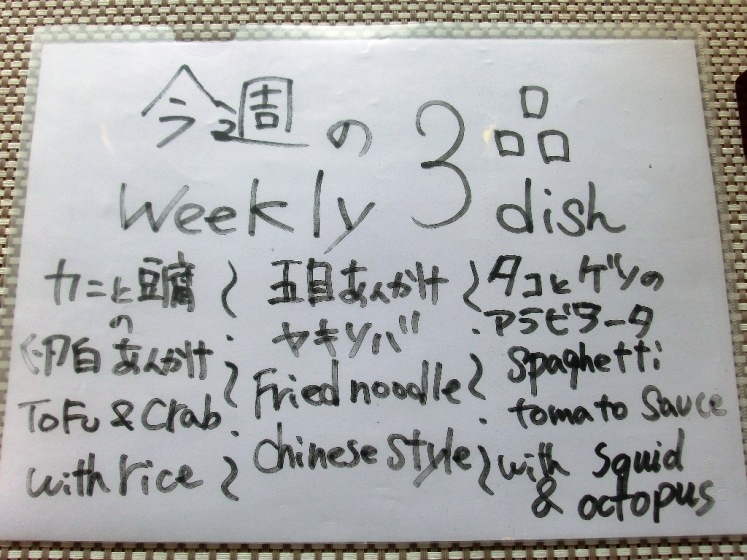 今週の3品
Weekly dish
カニと豆腐
の
卵白あんかけ
ToFu & Crab
with rice
五目あんかけ
ヤキソバ
Fried noodle
chinese style
タコとゲソの
アラビアータ
Spaghetti
tomato sauce
with squid
& octopus